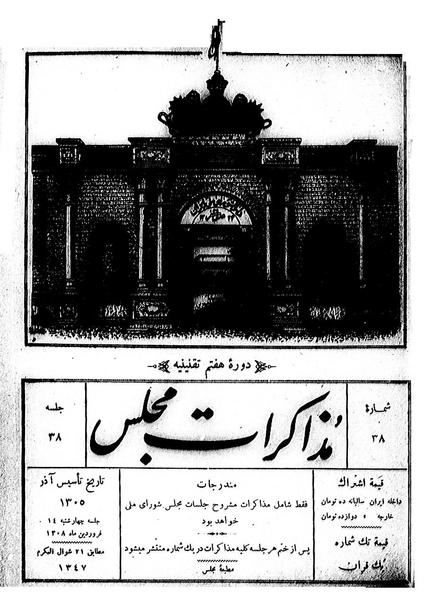 دورهٔ هفتم تقنینیه
شمارهٔ
۳۸
مذاکرات مجلس
جلسه
۳۸
قیمة اشتراک
داخله ایران سالیانه ده تومان
خارجه » دوازده تومان
قیمة تک شماره
یک قران
مندرجات
فقط شامل مذاکرات مشروح جلسات مجلس شورای ملی
خواهد بود
پس از ختم هر جلسه کلیه مذاکرات در یک شماره منتشر میشود
مطبعهٔ مجلس
تاریخ تأسیس آذر
۱۳۰۵
جلسه چهارشنبه ۱۴
فروردین ماه ۱۳۰۸
مطابق ۲۱ شوال المکرم
۱۳۴۷